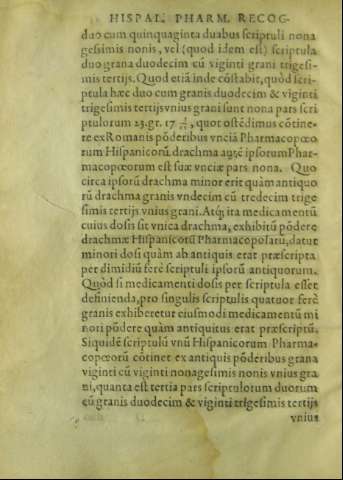 HISPAL. PHARM. RECOG-
duo cum quinquaginta duabus scriptuli nona
gesimis nonis, vel (quod idem est) scriptula
duo grana duodecim cũ viginti grani trigesi-
mis tertijs. Quod etiã inde cõstabit, quòd scri-
ptula hæc duo cum granis duodecim & viginti
trigesimis tertijs vnius grani sunt nona pars scri
ptulorum 23. gr. 17 quot ostẽdimus cõtine-
re ex Romanis põderibus vnciã Pharmacopœo
rum Hispanicorũ drachma autẽ ipsorum Phar-
macopœorum est suæ vnciæ pars nona. Quo
circa ipsorũ drachma minor erit quàm antiquo
rũ drachma granis vndecim cũ tredecim trige
simis tertijs vnius grani. Atq; ita medicamentũ
cuius dosis sit vnica drachma, exhibitũ põdere
drachmæ Hispanicorũ Pharmacopolarũ, datur
minori dosi quàm ab antiquis erat præscripta
per dimidiũ ferè scriptuli ipsorũ antiquorum.
Quòd si medicamenti dosis per scriptula esset
definienda, pro singulis scriptulis quatuor ferè
granis exhiberetur eiusmodi medicamentũ mi
nori põdere quàm antiquitus erat præscriptũ.
Siquidẽ scriptulũ vnũ Hispanicorum Pharma-
copœorũ cõtinet ex antiquis põderibus grana
viginti cũ viginti nonagesimis nonis vnius gra
ni, quanta est tertia pars scriptulorum duorum
cũ granis duodecim & viginti trigesimis tertijs
vnius